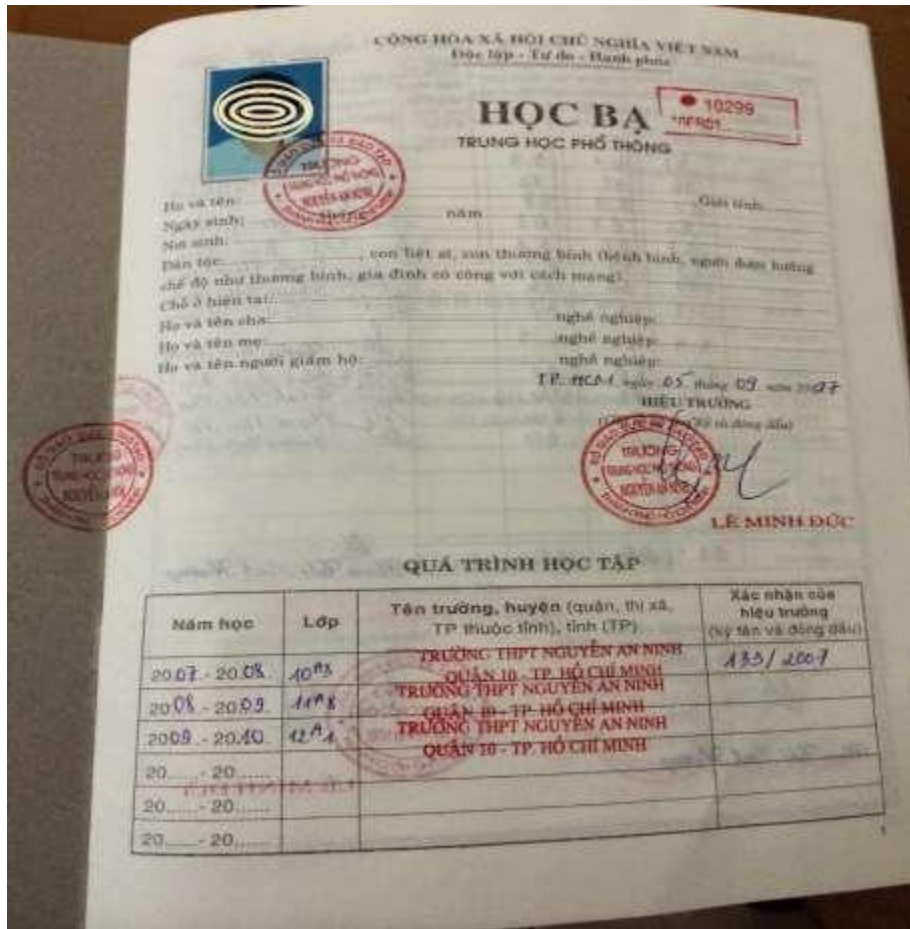 CỘNG HÒA XÃ HỘI CHỦ NGHĨA VIỆT NAM
Độc lập - Tự do - Hạnh phúc
HỌC BẠ
10299
TRUNG HỌC PHỔ THÔNG
Họ và tên: Giới tính:
Ngày sinh: năm
Nơi sinh:
Dân tộc: , con liệt sĩ, con thương binh (bệnh binh, người được hưởng
chế độ như thương binh, gia đình có công với cách mạng):
Chỗ ở hiện tại:
Họ và tên cha: nghề nghiệp:
Họ và tên mẹ: nghề nghiệp:
Họ và tên người giám hộ: nghề nghiệp:
TP. HCM, ngày 05 tháng 09 năm 2007
HIỆU TRƯỞNG
TRƯỜNG
TRUNG HỌC PHỔ THÔNG
NGUYỄN AN NINH
LÊ MINH ĐỨC
QUÁ TRÌNH HỌC TẬP
Năm học Lớp Tên trường, huyện (quận, thị xã, TP thuộc tỉnh), tỉnh (TP) Xác nhận của hiệu trưởng (ký tên và đóng dấu)
2007 - 2008 10A3 TRƯỜNG THPT NGUYỄN AN NINH
QUẬN 10 - TP. HỒ CHÍ MINH
2008 - 2009 11A8 TRƯỜNG THPT NGUYỄN AN NINH
QUẬN 10 - TP. HỒ CHÍ MINH
2009 - 2010 12A1 TRƯỜNG THPT NGUYỄN AN NINH
QUẬN 10 - TP. HỒ CHÍ MINH
20......- 20......
20......- 20......
20......- 20......
1